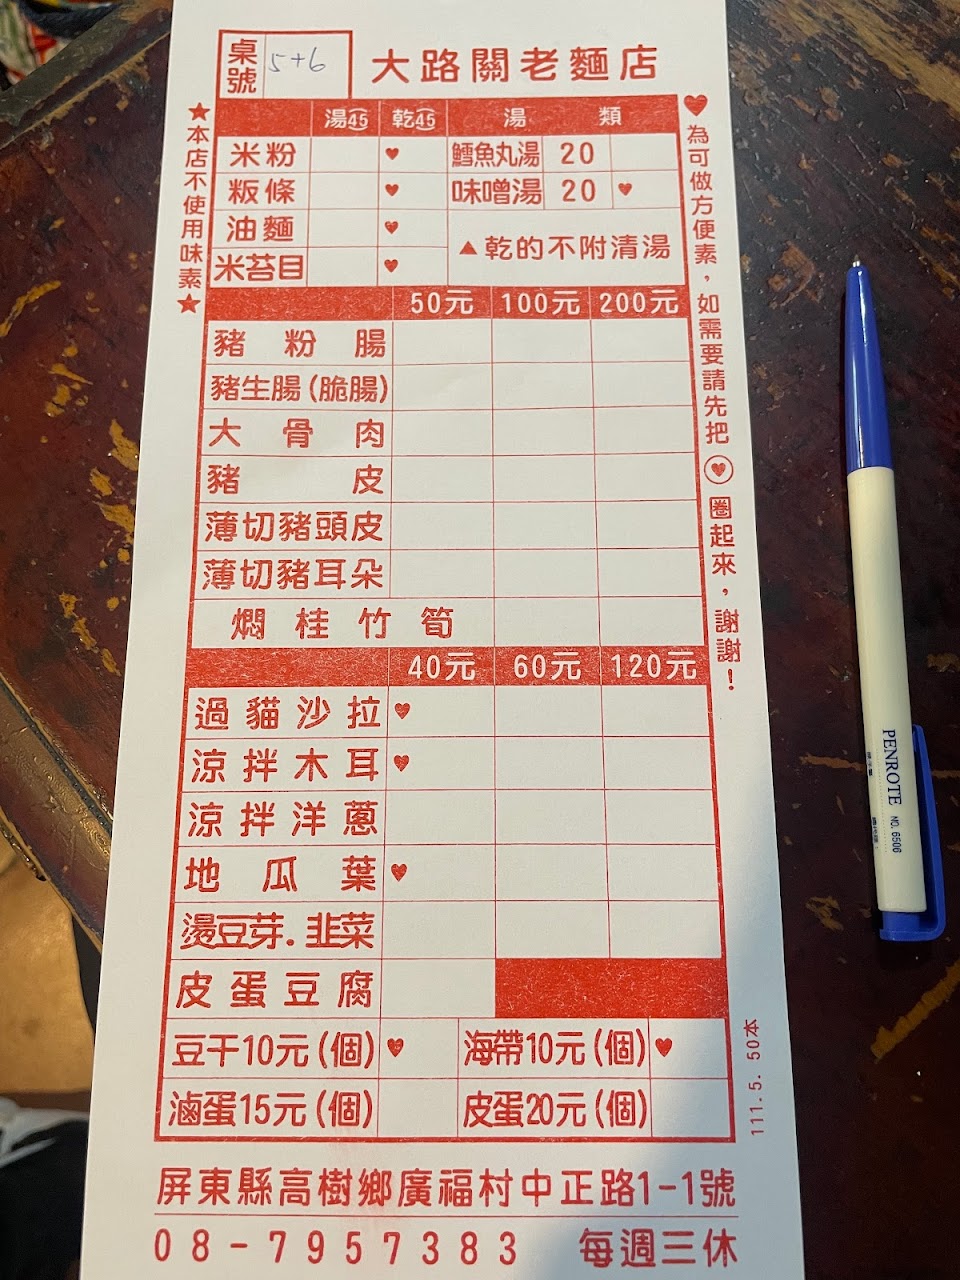 桌號 5+6
大路關老麵店
★本店不使用味素★
湯㊺ 乾㊺ 湯 類
米粉 ♥ 鱈魚丸湯 20
粄條 ♥ 味噌湯 20 ♥
油麵 ♥
▲乾的不附清湯
米苔目 ♥
♥為可做方便素，如需要請先把♥圈起來，謝謝！
50元 100元 200元
豬粉腸
豬生腸(脆腸)
大骨肉
豬皮
薄切豬頭皮
薄切豬耳朵
燜桂竹筍
40元 60元 120元
過貓沙拉 ♥
涼拌木耳 ♥
涼拌洋蔥
地瓜葉 ♥
燙豆芽．韭菜
皮蛋豆腐
豆干10元(個) ♥ 海帶10元(個) ♥
滷蛋15元(個) 皮蛋20元(個)
111.5. 50本
屏東縣高樹鄉廣福村中正路1-1號
08-7957383 每週三休
PENROTE NO. 6506